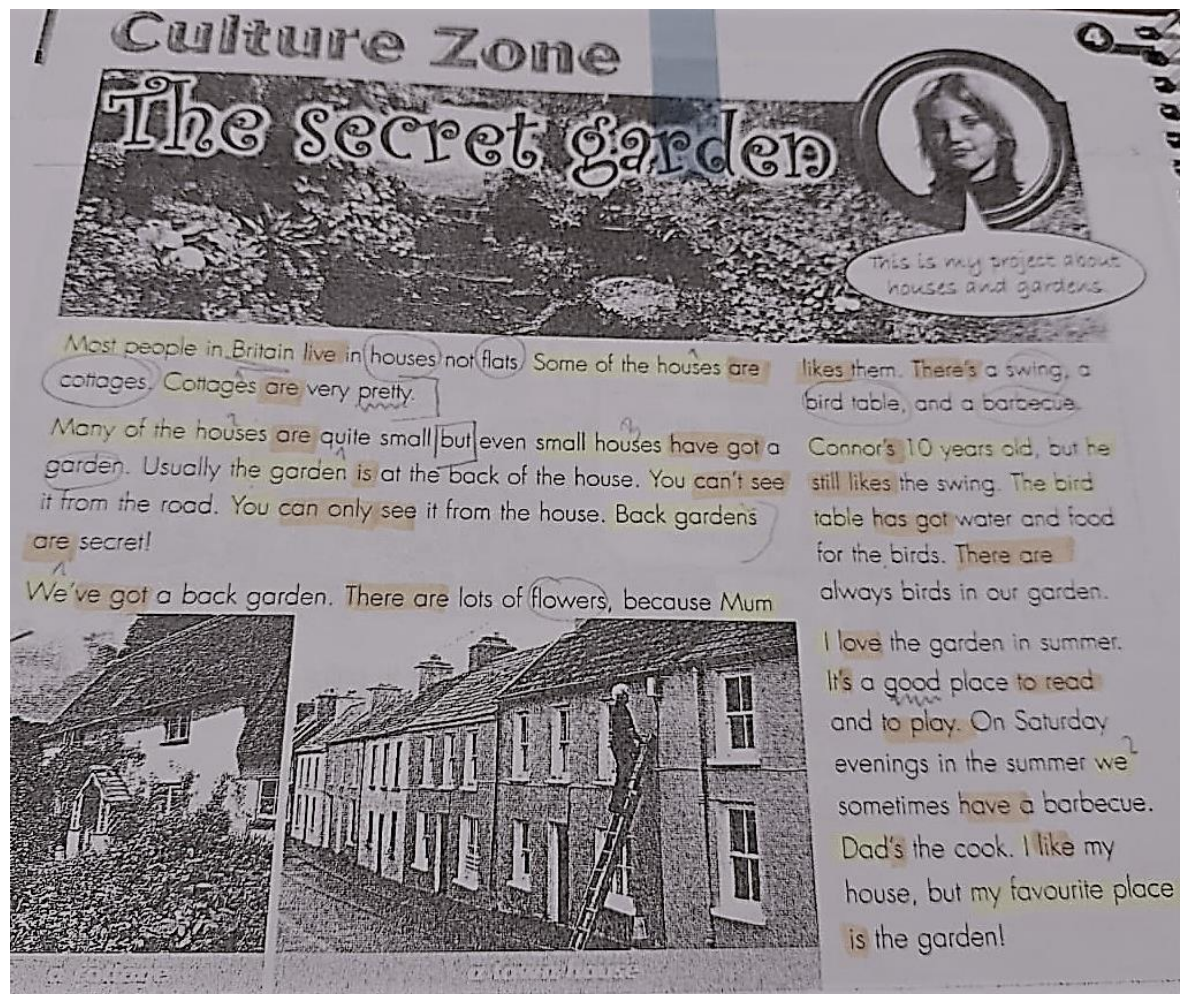 Culture Zone
4
The secret garden
This is my project about
houses and gardens.
Most people in Britain live in houses not flats. Some of the houses are
cottages. Cottages are very pretty.
Many of the houses are quite small but even small houses have got a
garden. Usually the garden is at the back of the house. You can't see
it from the road. You can only see it from the house. Back gardens
are secret!
We've got a back garden. There are lots of flowers, because Mum
likes them. There's a swing, a
bird table, and a barbecue.
Connor's 10 years old, but he
still likes the swing. The bird
table has got water and food
for the birds. There are
always birds in our garden.
I love the garden in summer.
It's a good place to read
and to play. On Saturday
evenings in the summer we
sometimes have a barbecue.
Dad's the cook. I like my
house, but my favourite place
is the garden!
a cottage
a town house